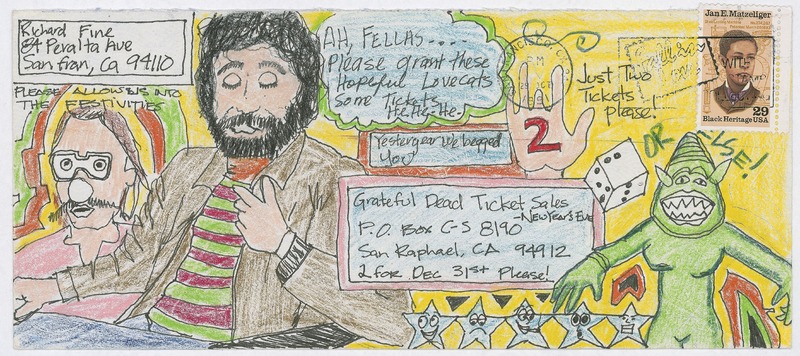 Richard Fine
84 Peralta Ave
San Fran, Ca 94110
PLEASE ALLOW US INTO
THE FESTIVITIES
AH, FELLAS...
Please grant these
Hopeful Lovecats
some Tickets
He-He-He-
Yesteryear We begged
You
2
Just Two
Tickets
Please!
OR ELSE!
Grateful Dead Ticket Sales
-NEW YEAR'S EVE
P.O. Box C-S 8190
San Raphael, CA 94912
2 for Dec 31st Please!
Jan E. Matzeliger
29
Black Heritage USA
PM